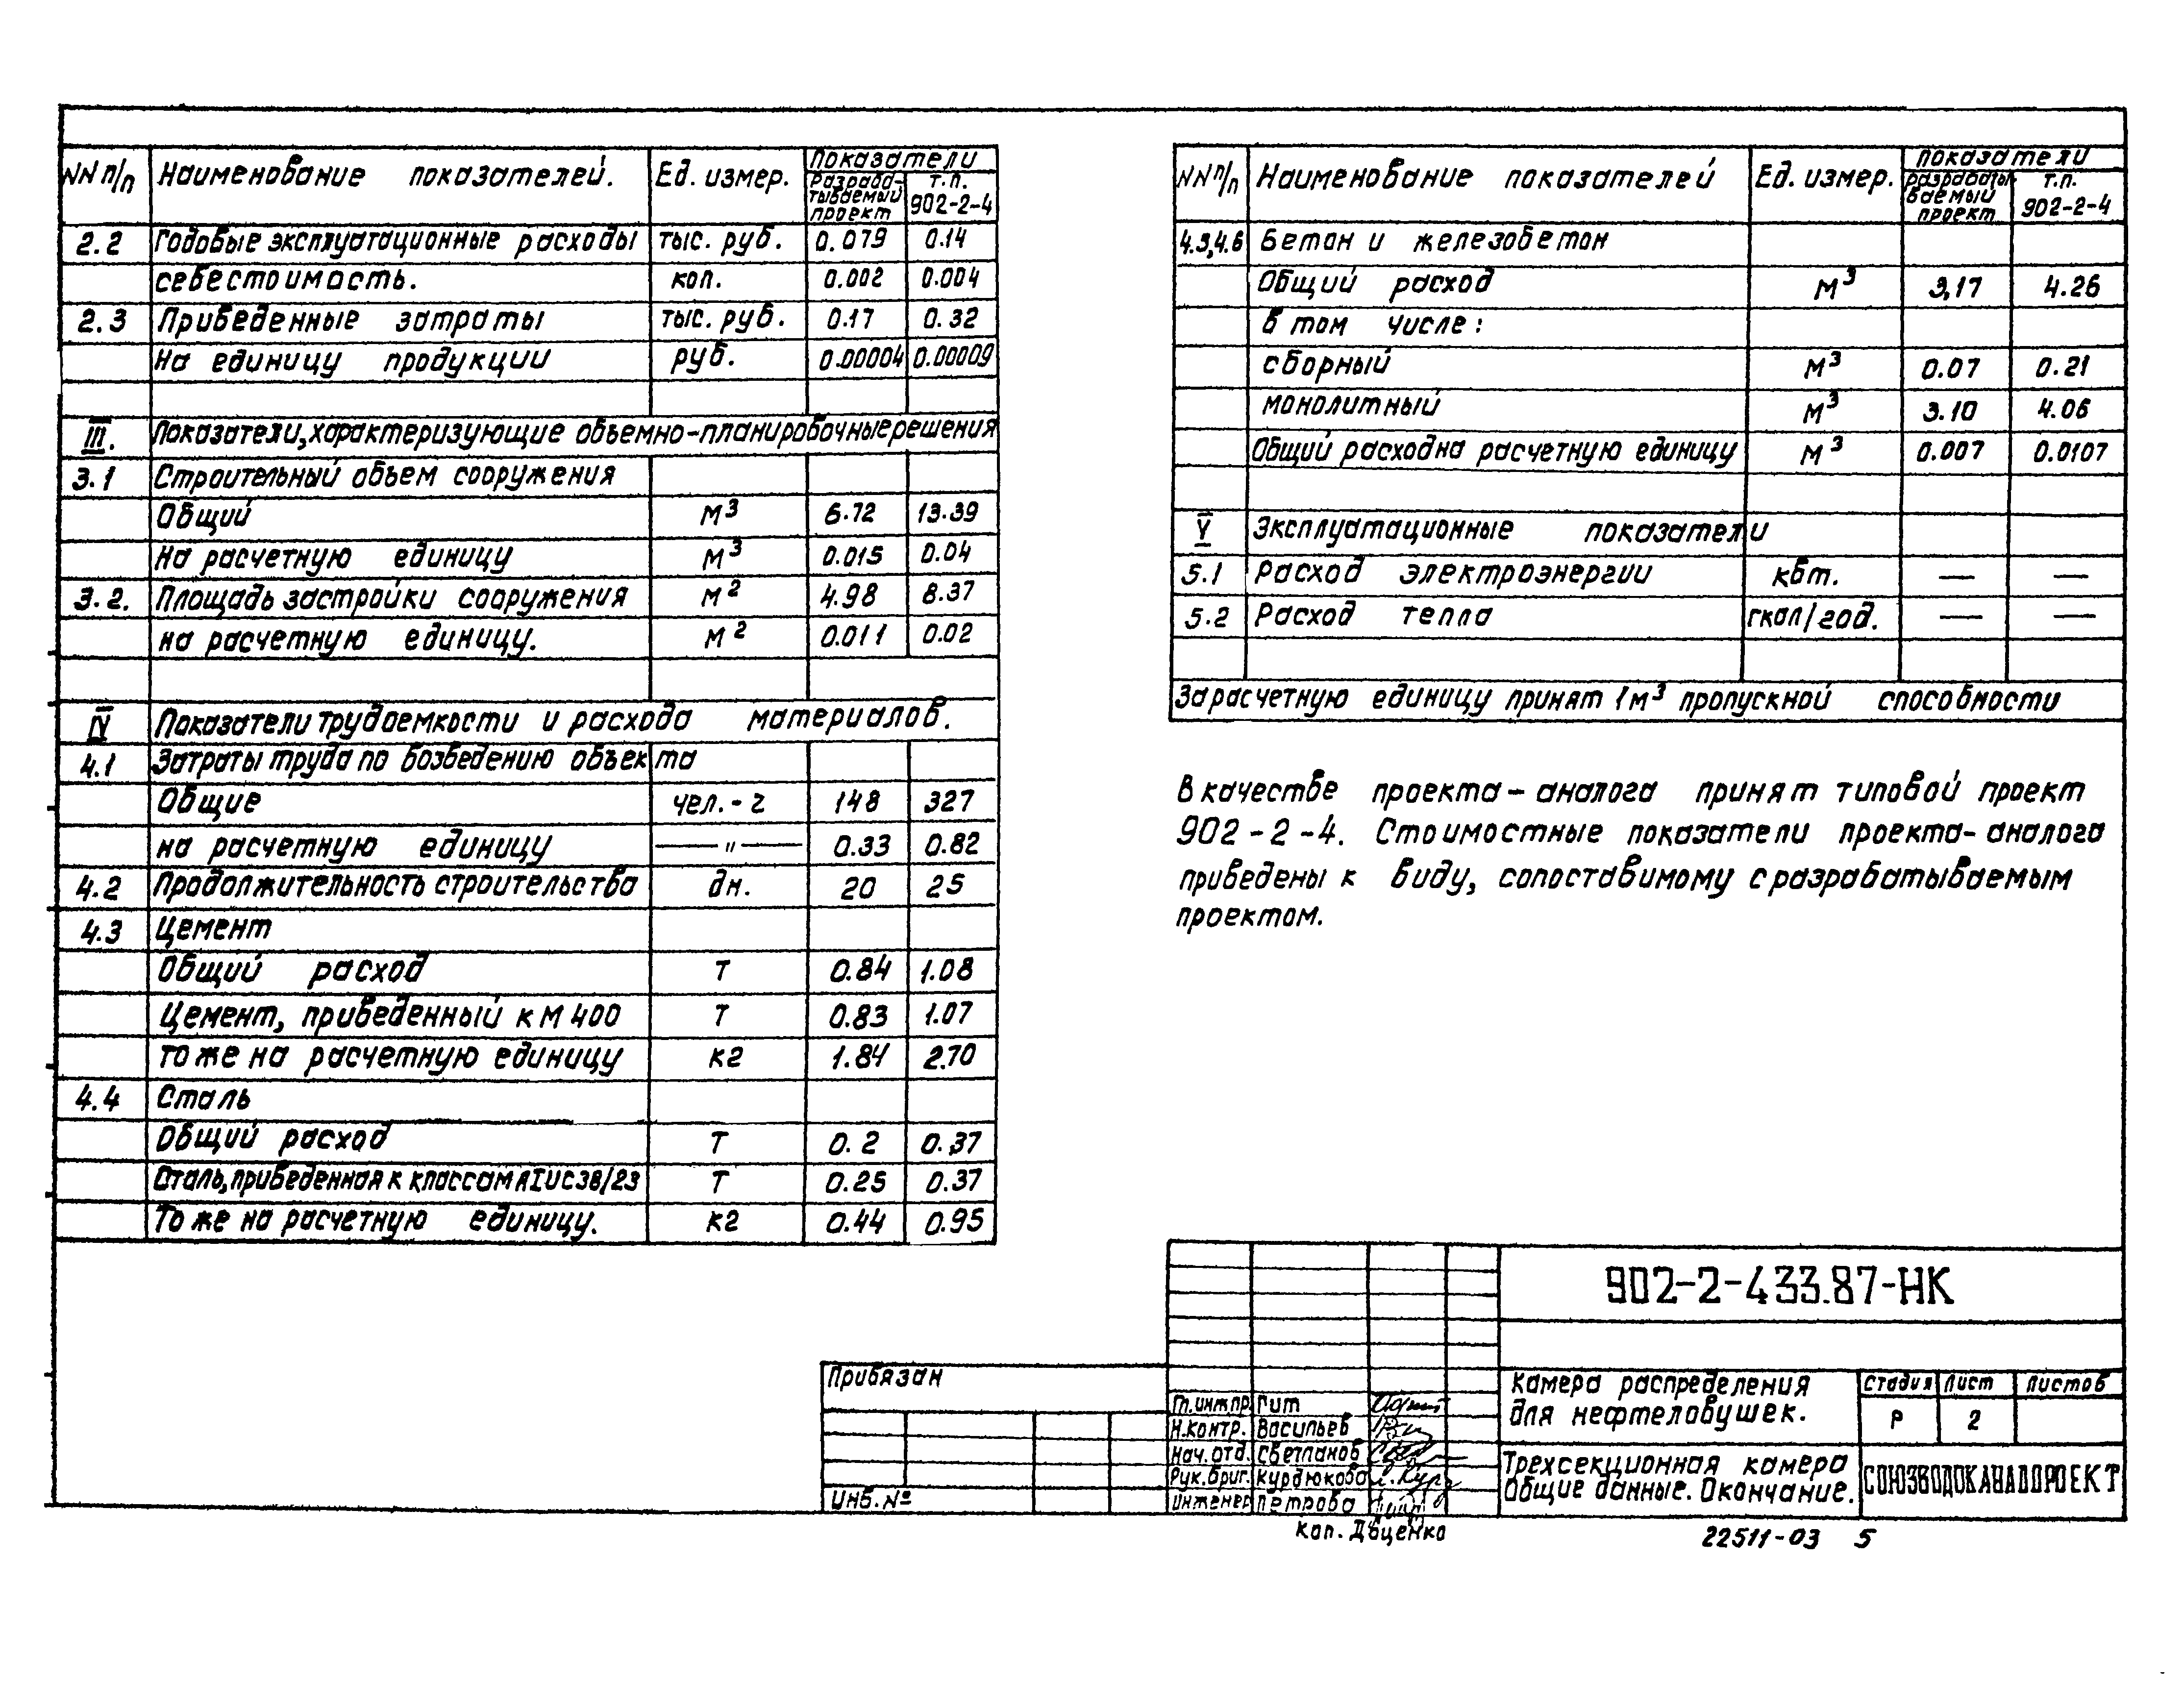 NN п/п Наименование показателей. Ед. измер. Показатели
Разраба-тываемый проект т.п. 902-2-4
2.2 Годовые эксплуатационные расходы тыс. руб. 0.079 0.14
себестоимость. коп. 0.002 0.004
2.3 Приведенные затраты тыс. руб. 0.17 0.32
На единицу продукции руб. 0.00004 0.00009
III. Показатели, характеризующие объемно-планировочные решения
3.1 Строительный объем сооружения
Общий м³ 6.72 13.39
На расчетную единицу м³ 0.015 0.04
3.2. Площадь застройки сооружения м² 4.98 8.37
на расчетную единицу. м² 0.011 0.02
IV Показатели трудоемкости и расхода материалов.
4.1 Затраты труда по возведению объекта
Общие чел.-ч 148 327
на расчетную единицу —"— 0.33 0.82
4.2 Продолжительность строительства дн. 20 25
4.3 Цемент
Общий расход т 0.84 1.08
Цемент, приведенный к М 400 т 0.83 1.07
то же на расчетную единицу кг 1.84 2.70
4.4 Сталь
Общий расход т 0.2 0.37
Сталь, приведенная к классам АI и С38/23 т 0.25 0.37
То же на расчетную единицу. кг 0.44 0.95
NN п/п Наименование показателей Ед. измер. Показатели
разрабаты ваемый проект т.п. 902-2-4
4.3,4.6 Бетон и железобетон
Общий расход м³ 3,17 4.26
в том числе:
сборный м³ 0.07 0.21
монолитный м³ 3.10 4.06
Общий расход на расчетную единицу м³ 0.007 0.0107
V Эксплуатационные показатели
5.1 Расход электроэнергии квт. — —
5.2 Расход тепла гкал/год. — —
За расчетную единицу принят 1 м³ пропускной способности
В качестве проекта-аналога принят типовой проект
902-2-4. Стоимостные показатели проекта-аналога
приведены к виду, сопоставимому с разрабатываемым
проектом.
902-2-433.87-НК
Привязан
Инв. №
Гл.инж.пр. Гит
Н.контр. Васильев
Нач.отд. Светланов
Рук.бриг. Курдюкова
Инженер Петрова
Камера распределения
для нефтеловушек.
Стадия Лист Листов
Р 2
Трехсекционная камера
Общие данные. Окончание.
СОЮЗВОДОКАНАЛПРОЕКТ
Коп. Доценко
22511-03 5